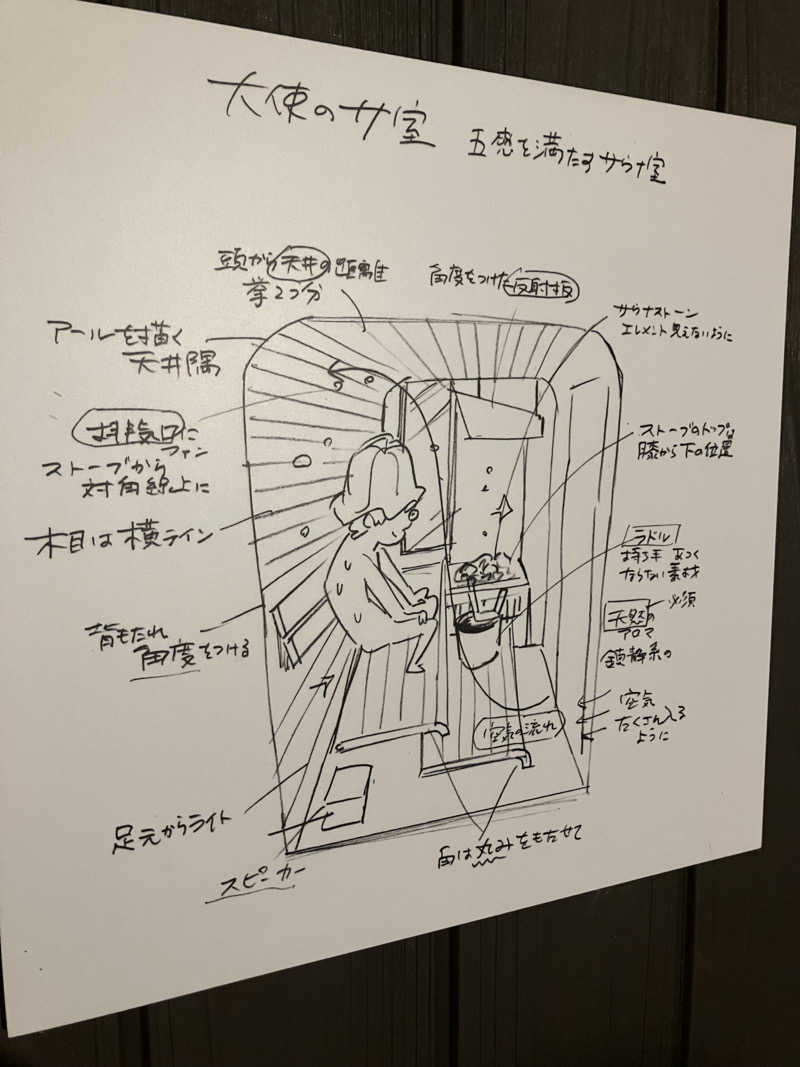 大使のサ室
五感を満たすサウナ室
頭から天井の距離
拳2つ分
角度をつけた反射板
サウナストーン
エレメント見えないように
アールを描く
天井隅
ストーブのトップは
膝から下の位置
排気口に
ファン
ストーブから
対角線上に
木目は横ライン
ラドル
持ち手 あつく
ならない素材
天然の
必須
アロマ
鎮静系の
背もたれ
角度をつける
空気
たくさん入る
ように
空気の流れ
足元からライト
角は丸みをもたせて
スピーカー